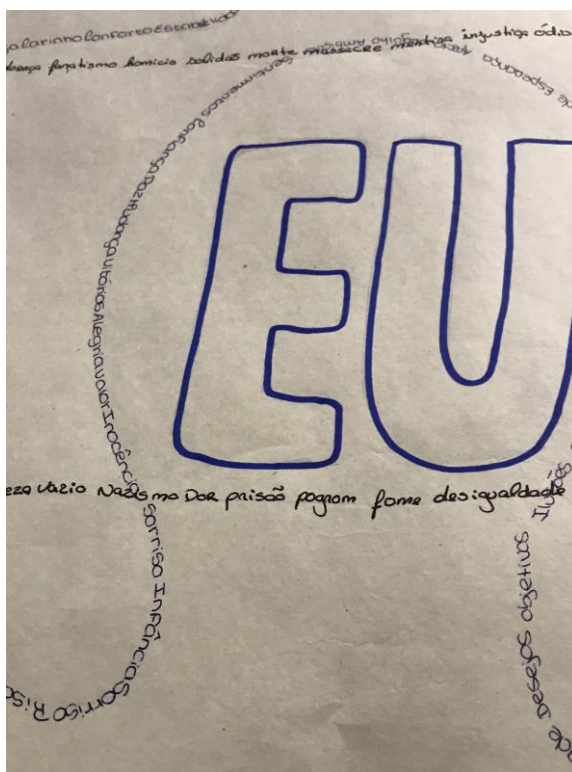 Carinho Conforto Estabilidade
fanatismo homicio solidão morte massacre mentira injustiça ódio
de Esperança
Sentimentos Confiança Paz Mudança Vitórias Alegria Valor Inocência Sorriso Infância Sorriso Riso
EU
eza Vazio Nazismo Dor prisão pogrom fome desigualdade
Ilusões
Desejos objetivos